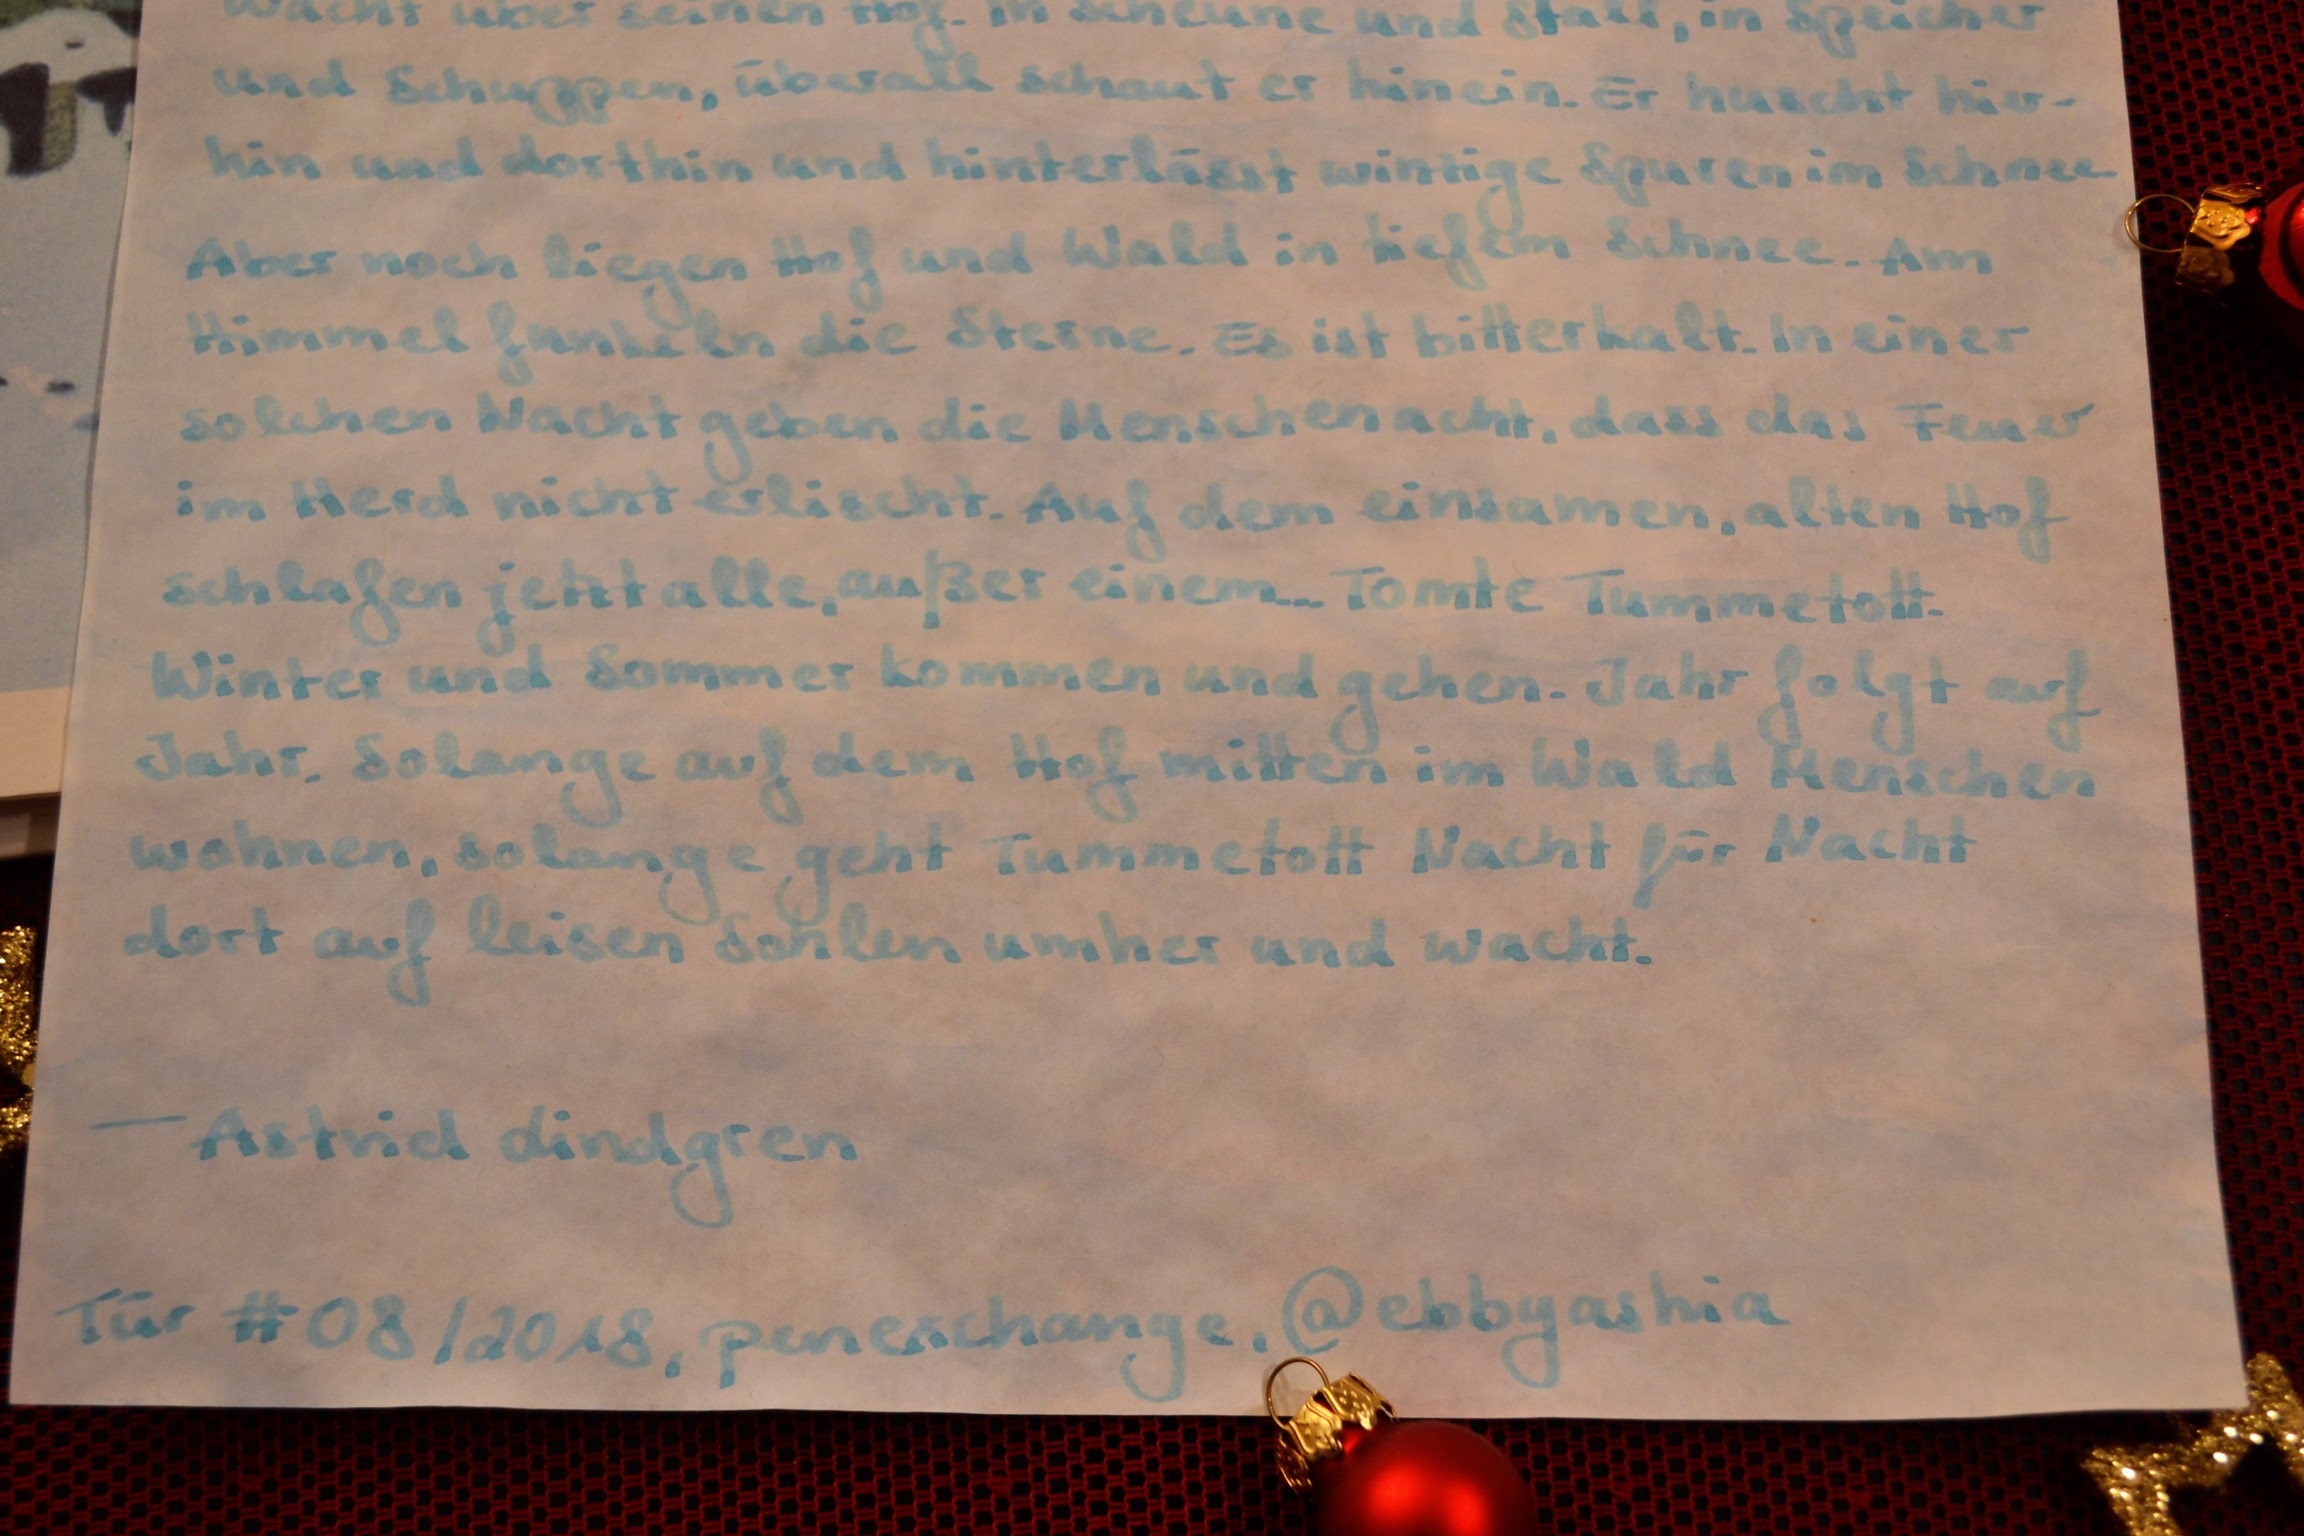 Wacht über seinen Hof. In Scheune und Stall, in Speicher
und Schuppen, überall schaut er hinein. Er huscht hier-
hin und dorthin und hinterlässt wintige Spuren im Schnee
Aber noch liegen Hof und Wald in tiefem Schnee. Am
Himmel funkeln die Sterne. Es ist bitterkalt. In einer
solchen Nacht geben die Menschen acht, dass das Feuer
im Herd nicht erlischt. Auf dem einsamen, alten Hof
schlafen jetzt alle, außer einem... Tomte Tummetott.
Winter und Sommer kommen und gehen. Jahr folgt auf
Jahr. Solange auf dem Hof mitten im Wald Menschen
wohnen, solange geht Tummetott Nacht für Nacht
dort auf leisen Sohlen umher und wacht.
— Astrid Lindgren
Tür #08/2018, penexchange, @ebbyashia